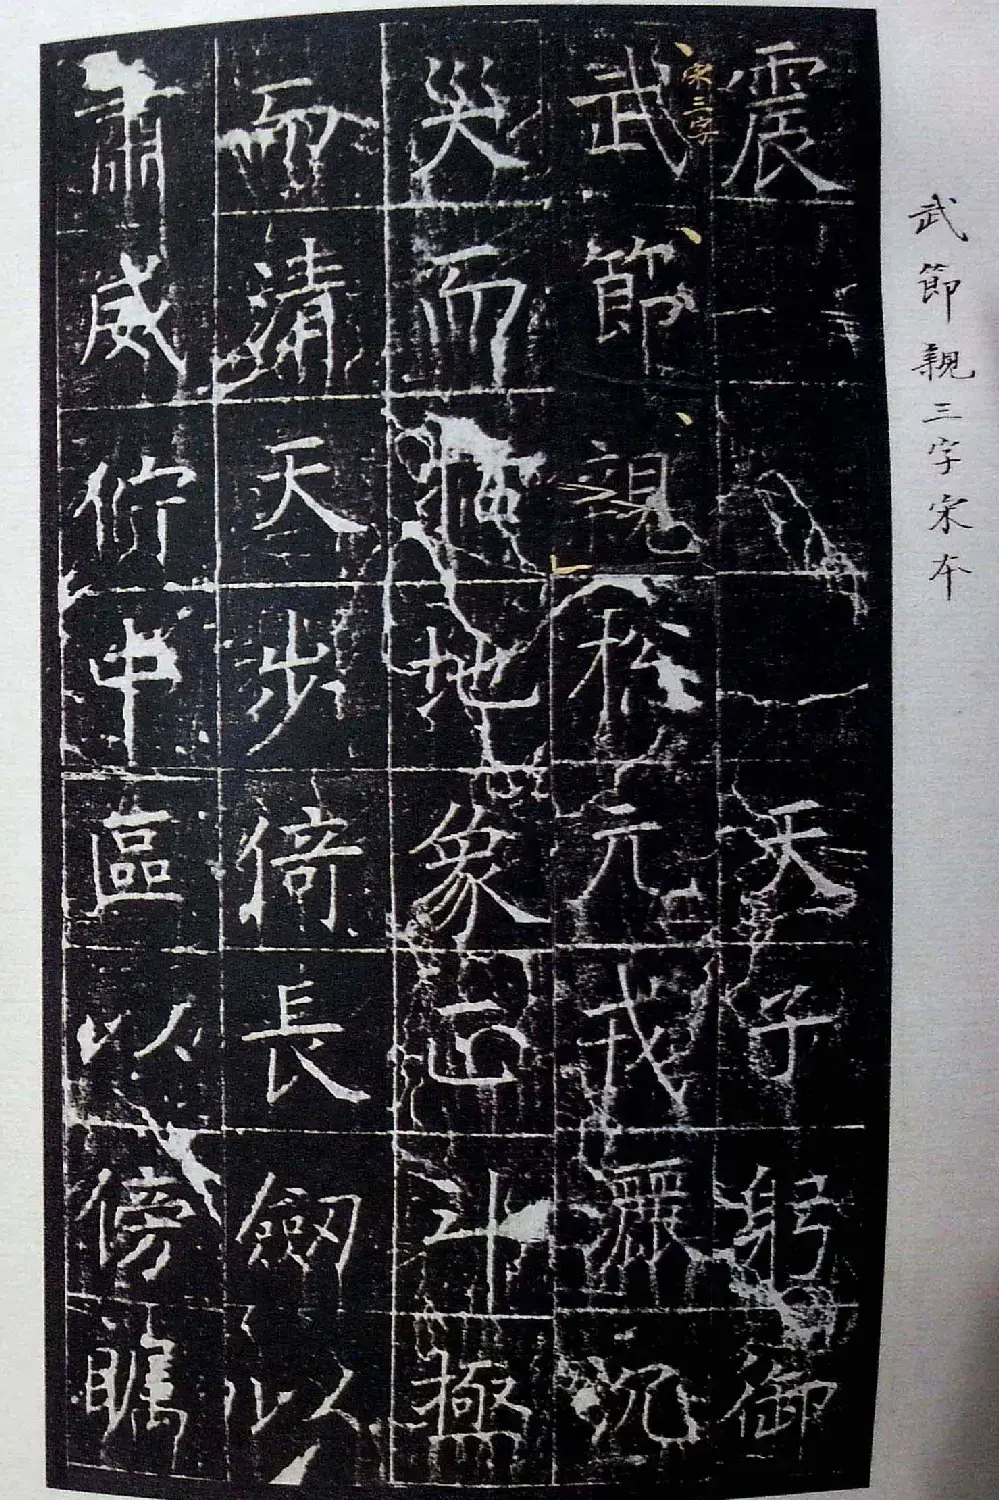 武節親三字宋本
震天子躬御
宋三字
武節親元戎灑沉
災而地象正斗極
而清天步倚長劒以
肅威佇中區以傍矚